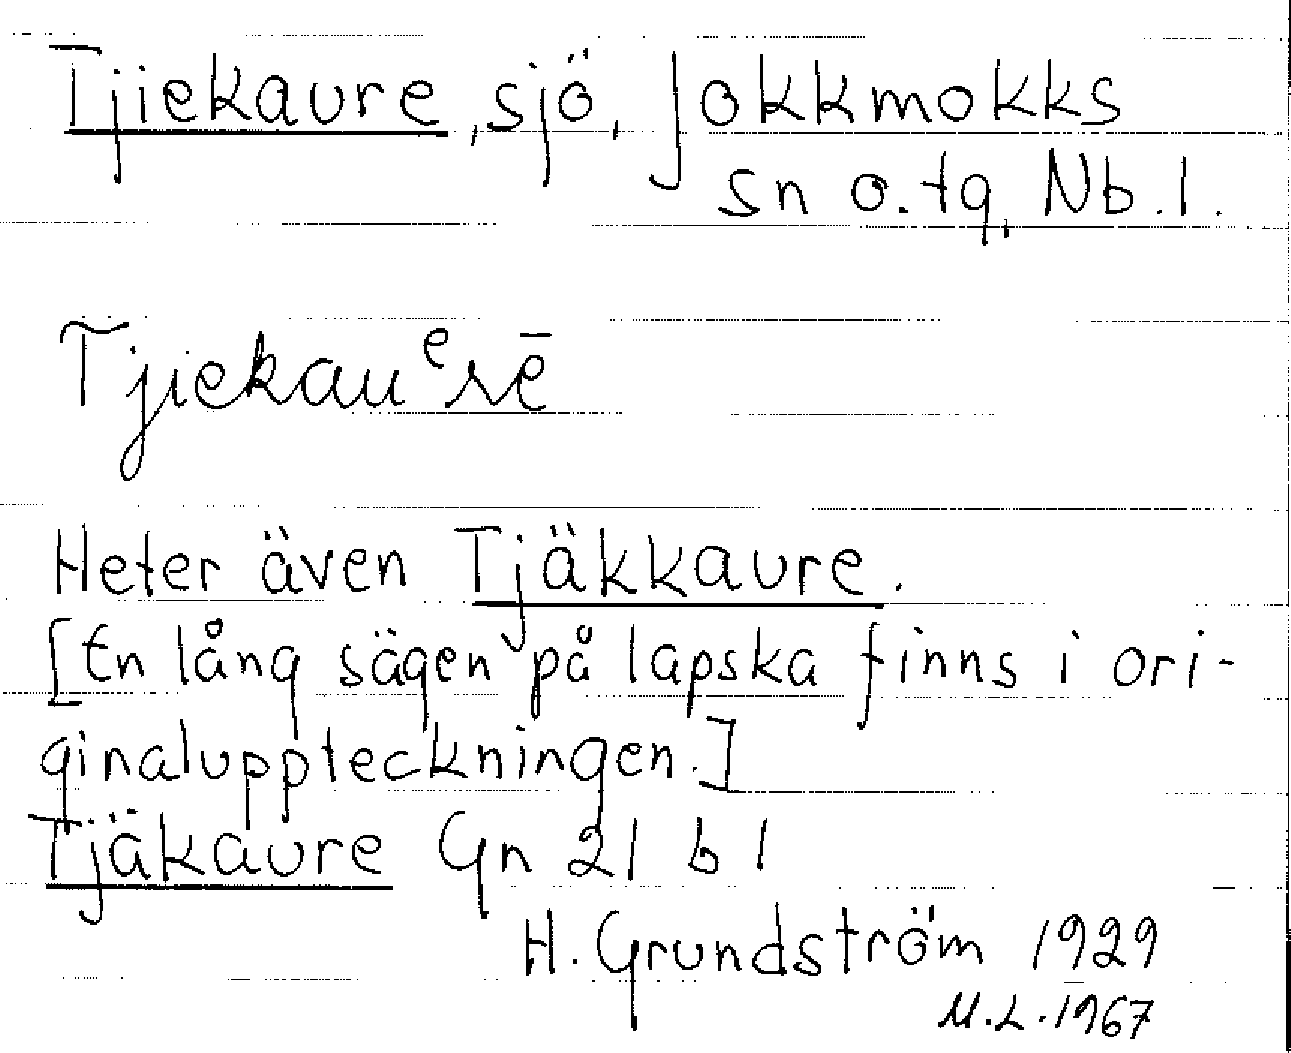 Tjiekaure, sjö, Jokkmokks
sn o. tg, Nb. l.
Tjiekauᵉrē
Heter även Tjäkkaure.
[En lång sägen på lapska finns i ori-
ginaluppteckningen.]
Tjäkaure Gn 21 b 1
H. Grundström 1929
M.L. 1967